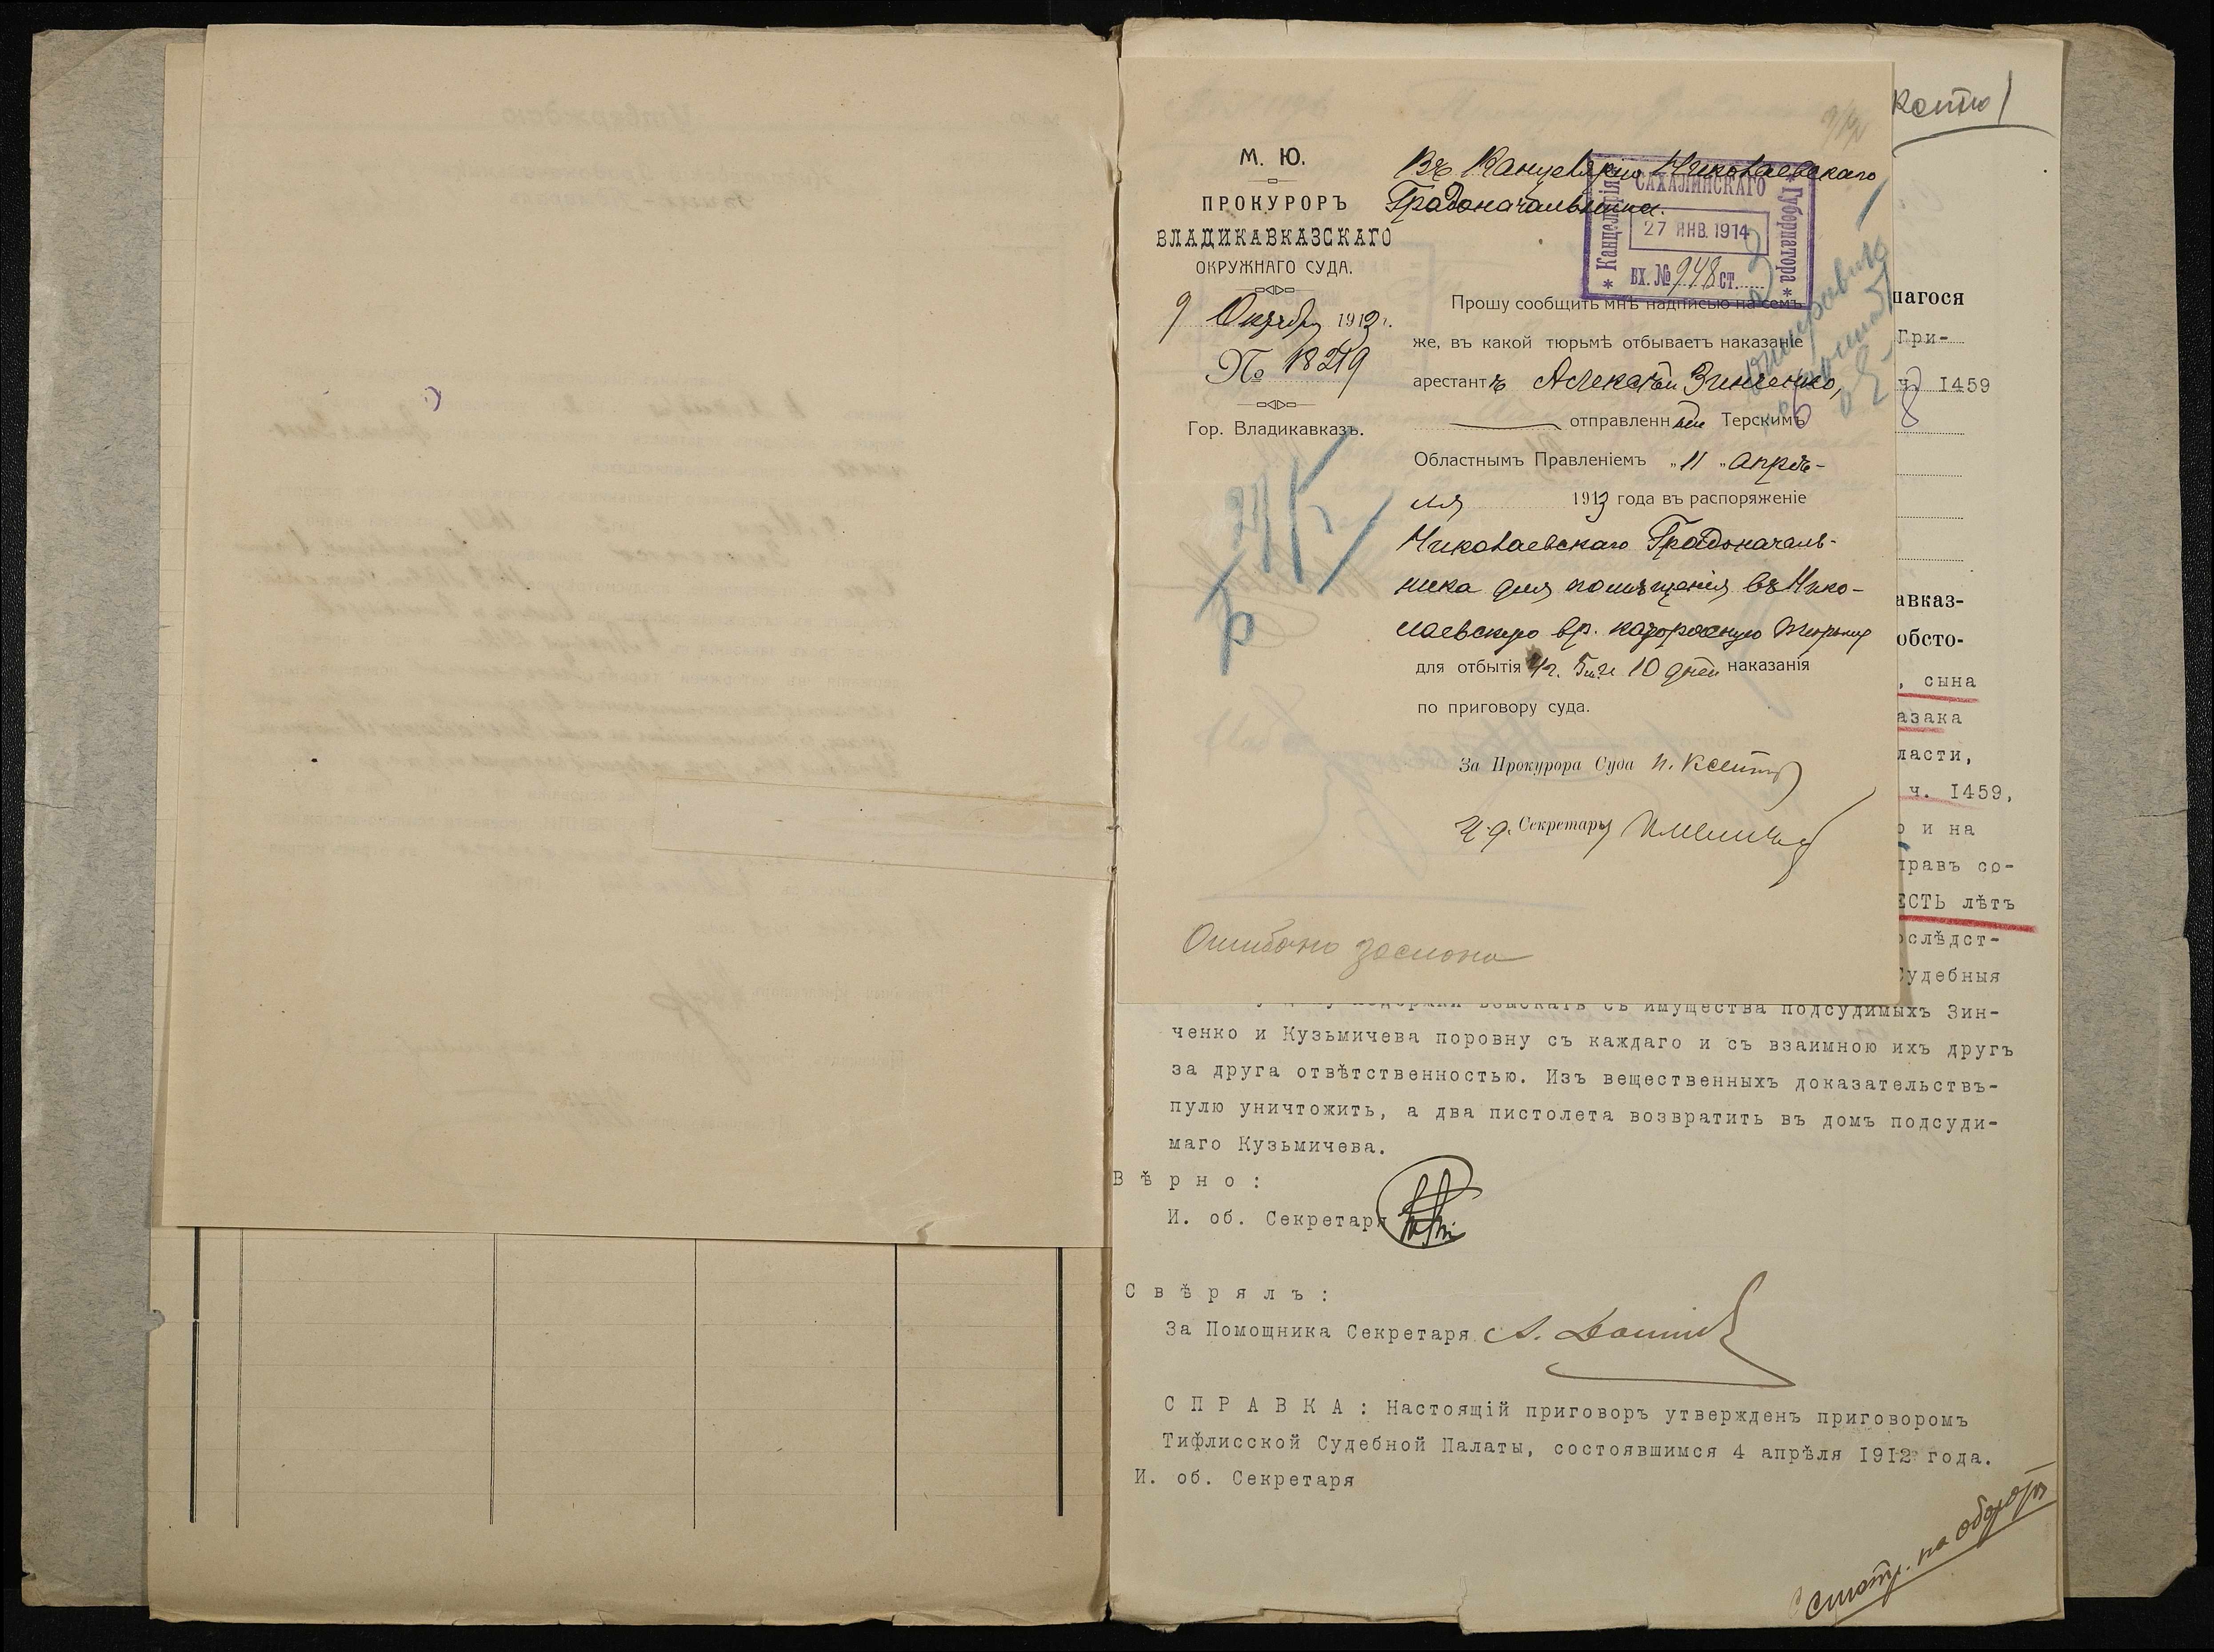 М. Ю.
ПРОКУРОРЪ
ВЛАДИКАВКАЗСКАГО
ОКРУЖНАГО СУДА.
9 Октября 1913 г.
№ 18219
Гор. Владикавказъ.
Въ Канцелярію Николаевскаго
Градоначальника.
Канцелярія САХАЛИНСКАГО Губернатора
27 ЯНВ. 1914
ВХ. № 948 СТ.
Прошу сообщить мнѣ надписью на семъ
же, въ какой тюрьмѣ отбываетъ наказаніе
арестантъ Алексѣй Зинченко,
отправленный Терскимъ
Областнымъ Правленіемъ „11„ апрѣ-
ля 1913 года въ распоряженіе
Николаевскаго Градоначаль-
ника для помѣщенія въ Нико-
лаевскую вр. каторжную тюрьму
для отбытія 4 г. 5 м. и 10 дней наказанія
по приговору суда.
За Прокурора Суда
И. д. Секретаря
Ошибочно заслона
копію
шагося
Гри-
ч. 1459
авказ-
обсто-
, сына
азака
ласти,
ч. 1459,
о и на
правъ со-
ЕСТЬ лѣтъ
ослѣдст-
Судебныя
взыскать съ имущества подсудимыхъ Зин-
ченко и Кузьмичева поровну съ каждаго и съ взаимною ихъ другъ
за друга отвѣтственностью. Изъ вещественныхъ доказательствъ-
пулю уничтожить, а два пистолета возвратить въ домъ подсуди-
маго Кузьмичева.
Вѣрно:
И. об. Секретаря
Свѣрялъ:
За Помощника Секретаря
СПРАВКА: Настоящій приговоръ утвержденъ приговоромъ
Тифлисской Судебной Палаты, состоявшимся 4 апрѣля 1912 года.
И. об. Секретаря
Смотр. на оборотѣ